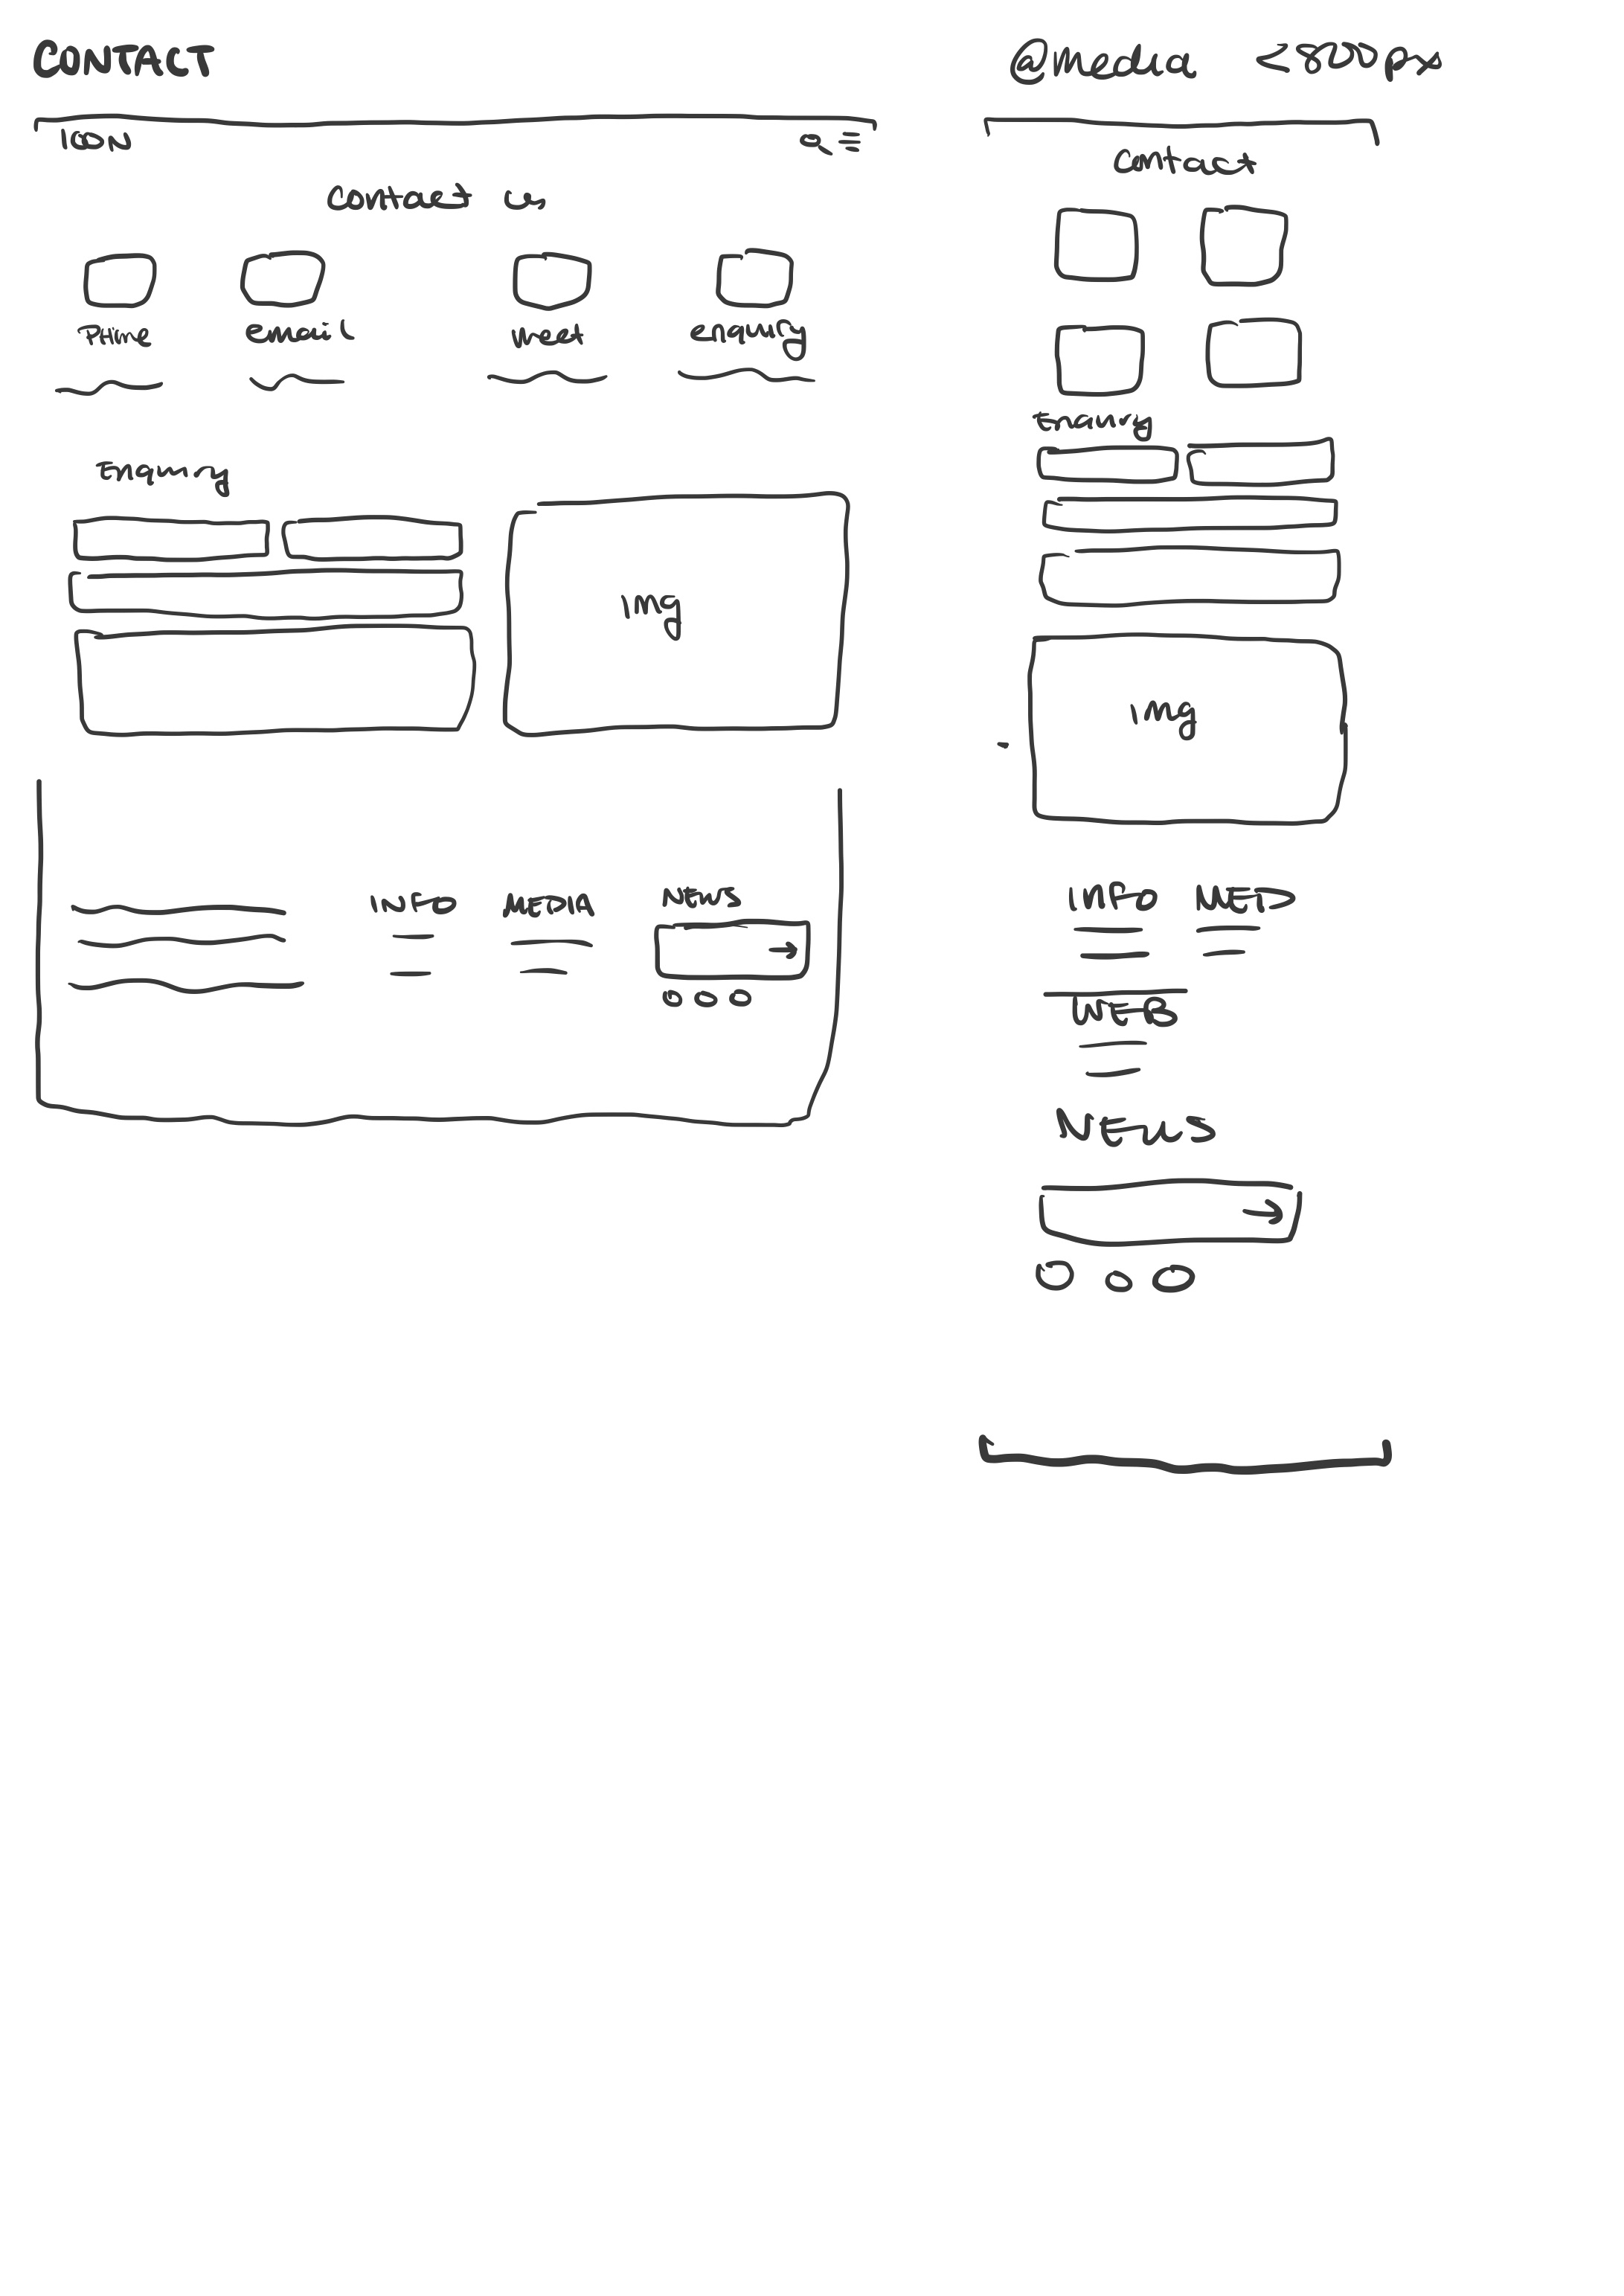 CONTACT
ICON
Contact us
Phone
email
meet
enquiry
Enquiry
img
INFO
MEDIA
NEWS
@media <800px
Contact
Enquiry
img
INFO
MED
WEB
NEWS